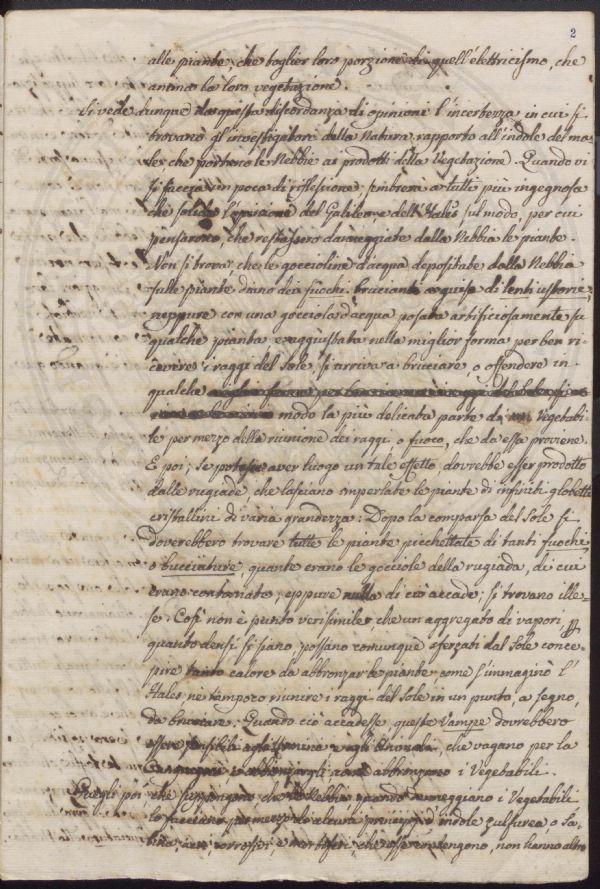 2
alle piante, che toglier loro porzione di quell'elettricismo, che
anima la loro vegetazione.
Si vede dunque da questa discordanza di opinioni l'incertezza in cui si
trovano gl'investigatori della Natura rapporto all'indole del ma-
le, che portano le Nebbie ai prodotti della Vegetazione. Quando vi
si faccia un poca di riflessione, sembrerà a tutti più ingegnosa
che solida l'opinione del Galileo, e dell'Hales sul modo, per cui
pensarono, che restassero danneggiate dalla Nebbia le piante.
Non si trova, che le goccioline d'acqua depositate dalla Nebbia
sulle piante diano dei fuochi brucianti a guisa di lenti ustorie,
neppure con una gocciola d'acqua posata artificiosamente su
qualche pianta, e aggiustata nella miglior forma per ben ri-
cevere i raggi del Sole, si arriva a bruciare, o offendere in
qualche modo la più delicata parte di Vegetabi-
le per mezzo della riunione dei raggi, o fuoco, che da essa proviene.
E poi; se potesse aver luogo un tale effetto, dovrebbe esser prodotto
dalle rugiade, che lasciano imperlate le piante di infiniti globetti
cristallini di varia grandezza: Dopo la comparsa del Sole si
doverebbero trovare tutte le piante picchettate di tanti fuochi,
o bucciature, quante erano le gocciole della rugiada, di cui
erano contornate; eppure nulla di ciò accade; si trovano ille-
se. Così non è punto verisimile, che un aggregato di vapori,
quanto densi si siano, possano comunque sferzati dal Sole conce-
pire tanto calore da abbronzar le piante come l'immaginò l'
Hales nè tampoco riunire i raggi del Sole in un punto, a segno,
da bruciare: Quando ciò accadesse, queste Vampe dovrebbero
essere sensibili agli che vagano per la
abbronzano i Vegetabili.
Quegli poi che suppongono che le Nebbie quando danneggiano i Vegetabili
lo facciano per mezzo di alcuni principj d'indole zulfurea, o Sa-
lina, acri, corrosivi, e mortiferi, che esse contengono, non hanno altro